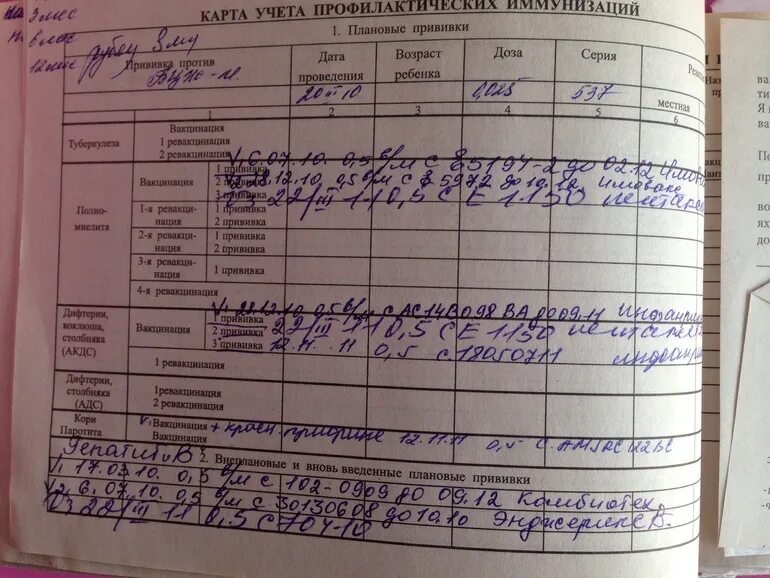 3 мес
КАРТА УЧЕТА ПРОФИЛАКТИЧЕСКИХ ИММУНИЗАЦИЙ
6 мес
1. Плановые прививки
12 мес
рубец 3мм
Прививка против
Дата проведения
Возраст ребенка
Доза
Серия
местная
БЦЖ-м
20 III 10
0,025
537
1 2 3 4 5 6
Туберкулеза
Вакцинация
1 ревакцинация
2 ревакцинация
V1 6.07.10. 0,5 в/м с 85194-2 до 02.12
Полиомиелита
Вакцинация
1 прививка
V2 28.12.10 0,5 в/м с 85972 до 10.12 Имовакс
2 прививка
3 прививка
V3 22/III 11 0,5 с Е 1150 пентакс
1-я ревакцинация
1 прививка
2 прививка
2-я ревакцинация
1 прививка
2 прививка
3-я ревакцинация
1 прививка
4-я ревакцинация
V1 28.12.10 0,5 в/м с АС14В098ВА до 09.11 Инфанри
Дифтерии, коклюша, столбняка (АКДС)
Вакцинация
1 прививка
2 прививка
22/III 11 0,5 с Е 1150
3 прививка
12.11.11 0,5 с.18050711
1 ревакцинация
Дифтерии, столбняка (АДС)
1 ревакцинация
2 ревакцинация
Кори
Паротита
V1 Вакцинация + красн. приорикс 12.11.11 0,5 с.
Вакцинация
Гепатит В
2. Внеплановые и вновь введенные плановые прививки
V1 17.03.10. 0,5 в/м с 102-0909 до 09.12 Комбиотех
V2 6.07.10. 0,5 в/м с 30130608 до 10.10 Энджерикс В.
V3 22/III 11 0,5 с 704-10